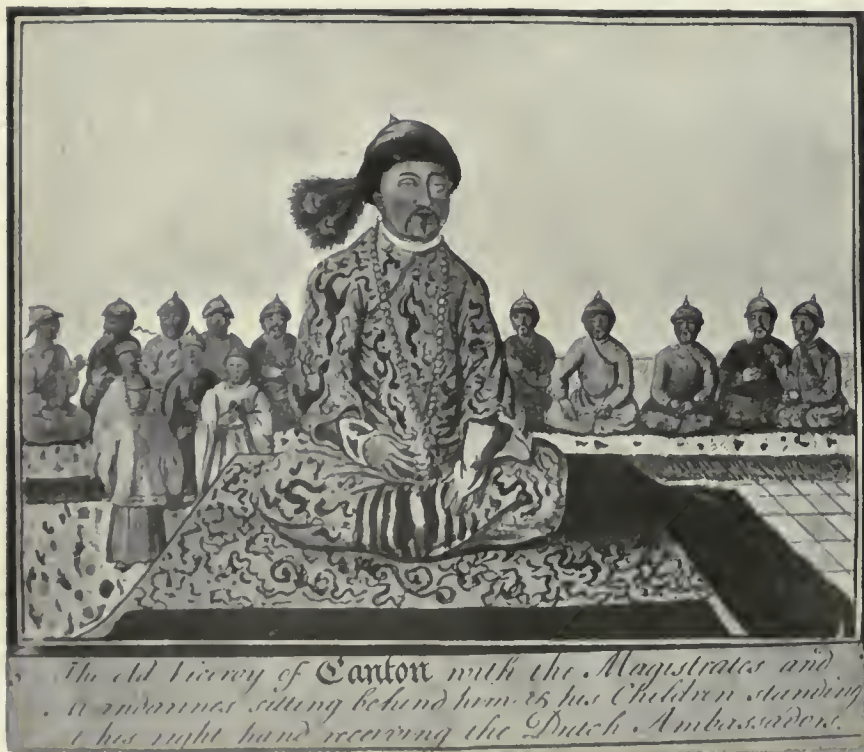 The old Viceroy of Canton with the Magistrates and
Mandarines sitting behind him & his Children standing
his right hand receiving the Dutch Ambassadors.